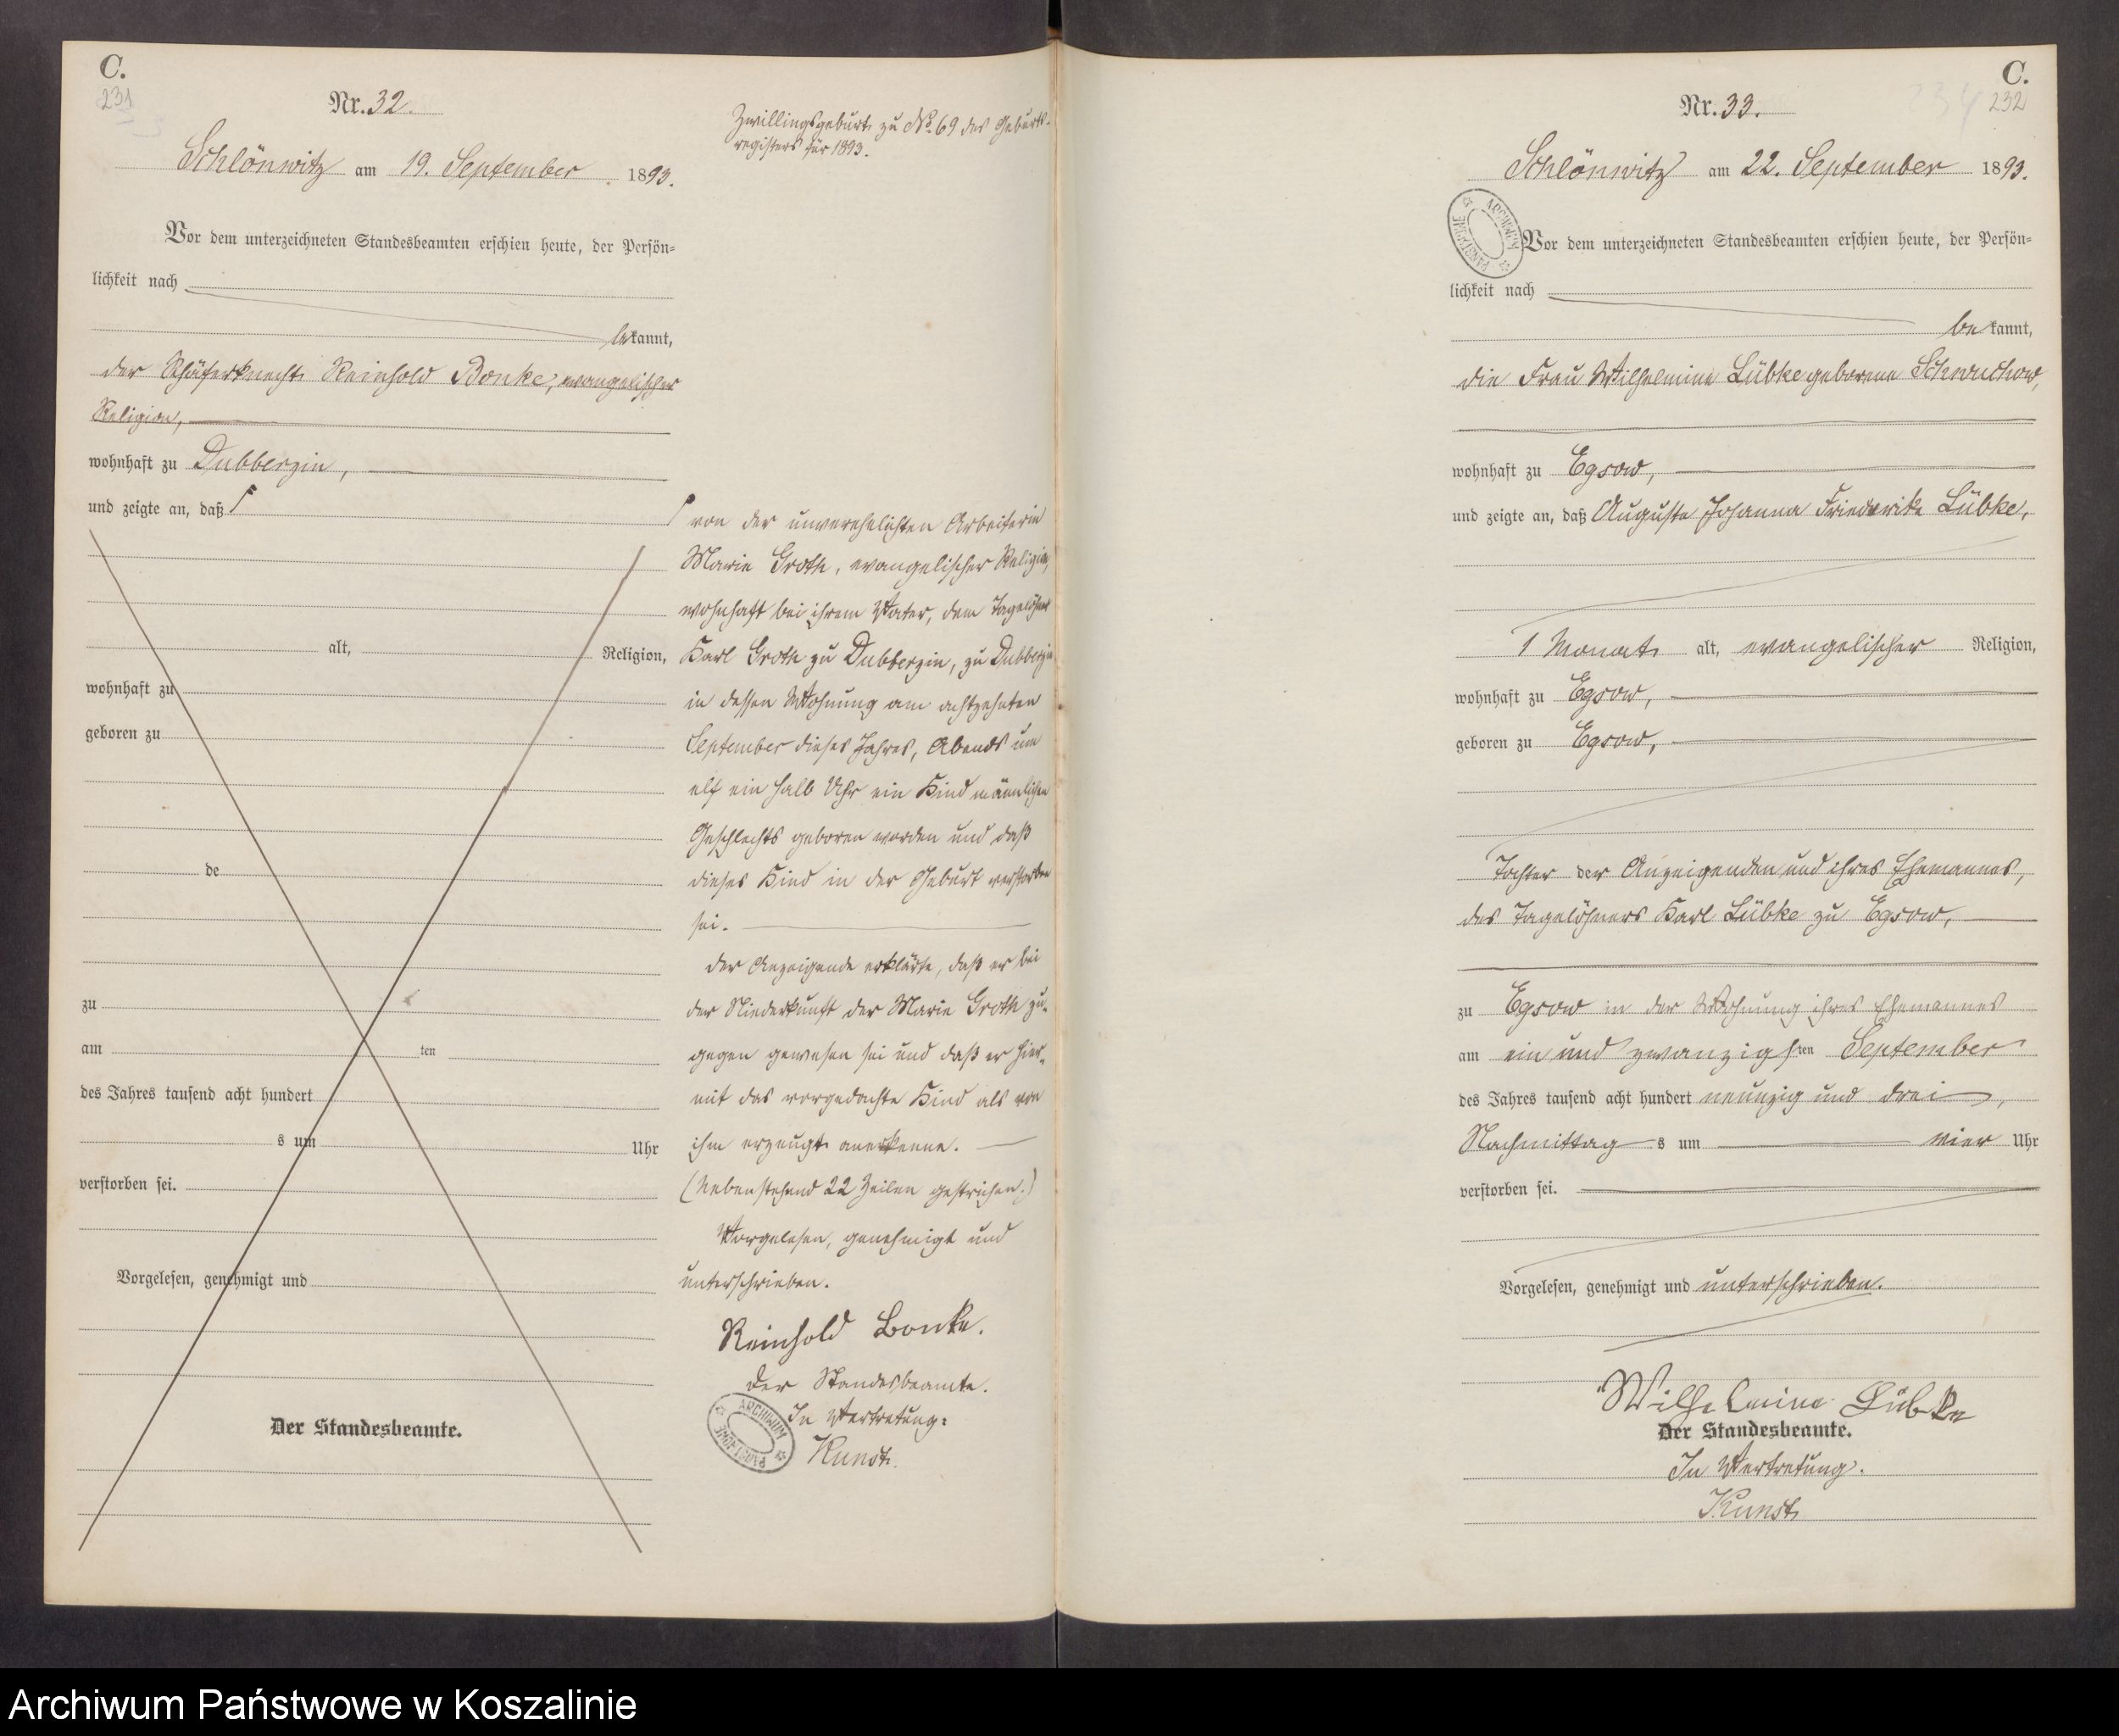 C.
231
Nr. 32.
Zwillingsgeburt zu No. 69 des Geburts-
registers für 1893.
Schlönwitz am 19. September 1893.
Vor dem unterzeichneten Standesbeamten erschien heute, der Persön=
lichkeit nach
bekannt,
der Schäferknecht Reinhold Bonke, evangelischer
Religion,
wohnhaft zu Dubberzin,
und zeigte an, daß
alt, Religion,
wohnhaft zu
geboren zu
de
zu
am ten
des Jahres tausend acht hundert
s um Uhr
verstorben sei.
Vorgelesen, genehmigt und
Der Standesbeamte.
von der unverehelichten Arbeiterin
Marie Groth, evangelischer Religion,
wohnhaft bei ihrem Vater, dem Tagelöhner
Karl Groth zu Dubberzin, zu Dubberzin
in dessen Wohnung am achtzehnten
September dieses Jahres, Abends um
elf ein halb Uhr ein Kind männlichen
Geschlechts geboren worden und daß
dieses Kind in der Geburt verstorben
sei.
Der Anzeigende erklärte, daß er bei
der Niederkunft der Marie Groth zu-
gegen gewesen sei und daß er hier-
mit das vorgedachte Kind als von
ihm erzeugt anerkenne.
(Nebenstehend 22 Zeilen gestrichen.)
Vorgelesen, genehmigt und
unterschrieben.
Reinhold Bonke.
Der Standesbeamte.
In Vertretung:
Kunst.
ARCHIWUM PAŃSTWOWE
C.
232
Nr. 33.
Schlönwitz am 22. September 1893.
ARCHIWUM PAŃSTWOWE
Vor dem unterzeichneten Standesbeamten erschien heute, der Persön=
lichkeit nach
bekannt,
die Frau Wilhelmine Lübke geborene Schwuchow,
wohnhaft zu Egsow,
und zeigte an, daß Auguste Johanna Friederike Lübke,
1 Monat alt, evangelischer Religion,
wohnhaft zu Egsow,
geboren zu Egsow,
Tochter der Anzeigenden und ihres Ehemannes,
des Tagelöhners Karl Lübke zu Egsow,
zu Egsow in der Wohnung ihres Ehemannes
am ein und zwanzigsten September
des Jahres tausend acht hundert neunzig und drei,
Nachmittags um vier Uhr
verstorben sei.
Vorgelesen, genehmigt und unterschrieben.
Wilhelmine Lübke
Der Standesbeamte.
In Vertretung.
Kunst
Archiwum Państwowe w Koszalinie